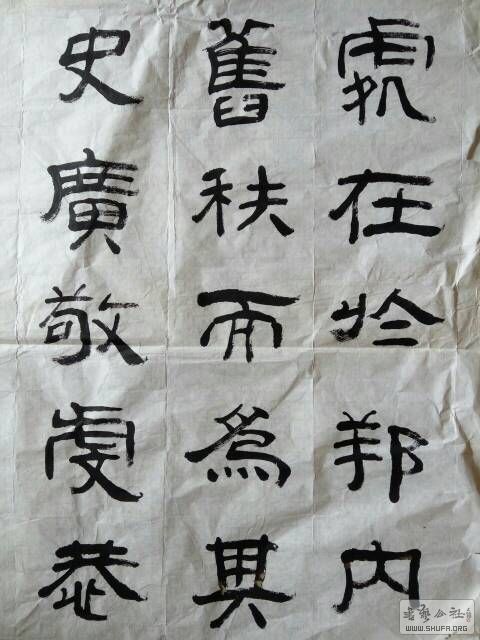 處在於邦內
舊秩而為其
史廣敬虔恭
书艺公社
WWW.SHUFA.ORG